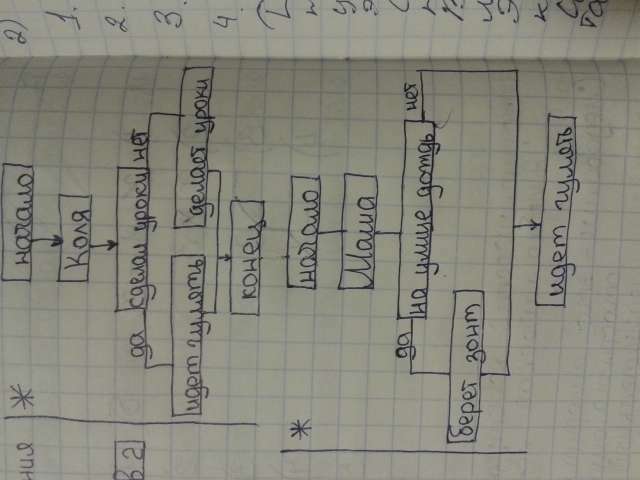 ния
в 2
*
начало
Коля
да сделал уроки нет
идет гулять делает уроки
конец
*
начало
Маша
да на улице дождь нет
берет зонт
идет гулять
2)
1.
2.
3.
4.